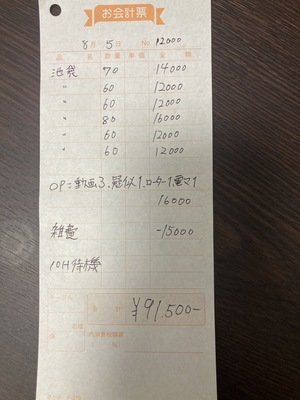 お会計票
8月 5日 No. 12000
品名 数量 単価 金額
池袋 70 14000
〃 60 12000
〃 60 12000
〃 80 16000
〃 60 12000
〃 60 12000
OP=動画3、疑似1、ローター1、電マ1
16000
雑費 -15000
10H待機
合計 ¥91.500-